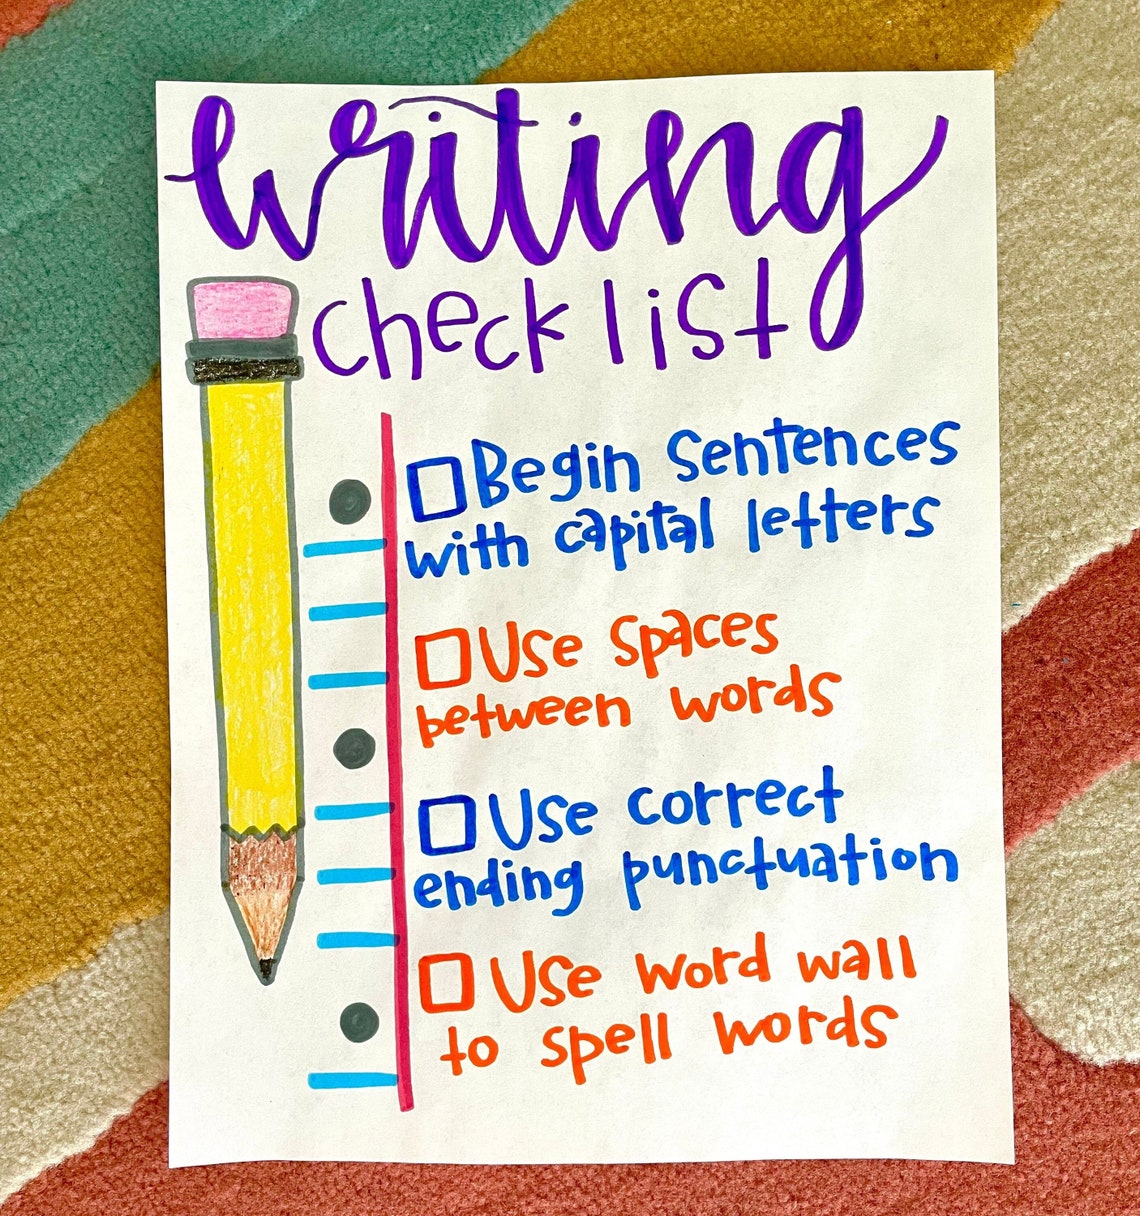 writing
checklist
Begin sentences
with capital letters
Use spaces
between words
Use correct
ending punctuation
Use word wall
to spell words